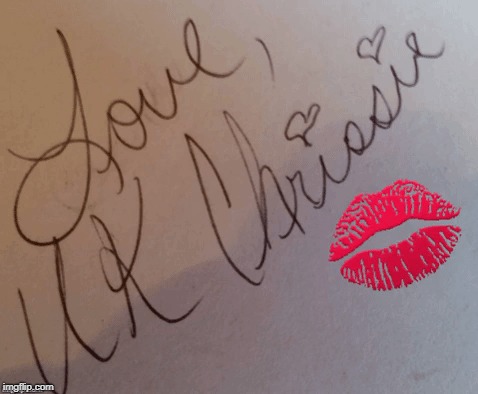 Love,
UK Chrissie
imgflip.com